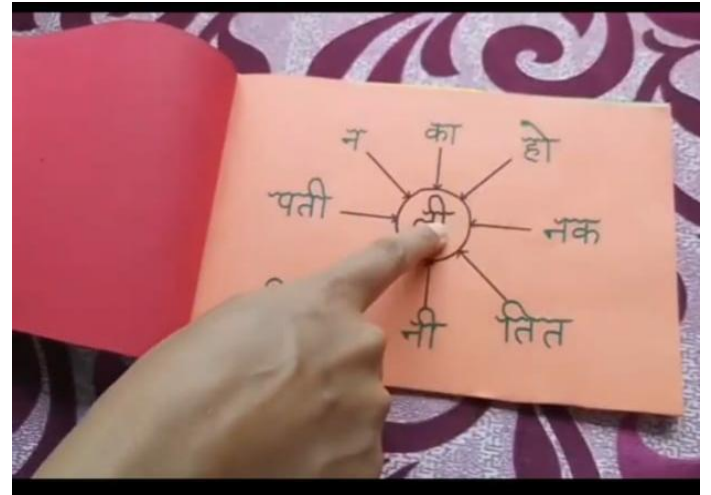 न
का
हो
पती
ली
नक
नी
तित